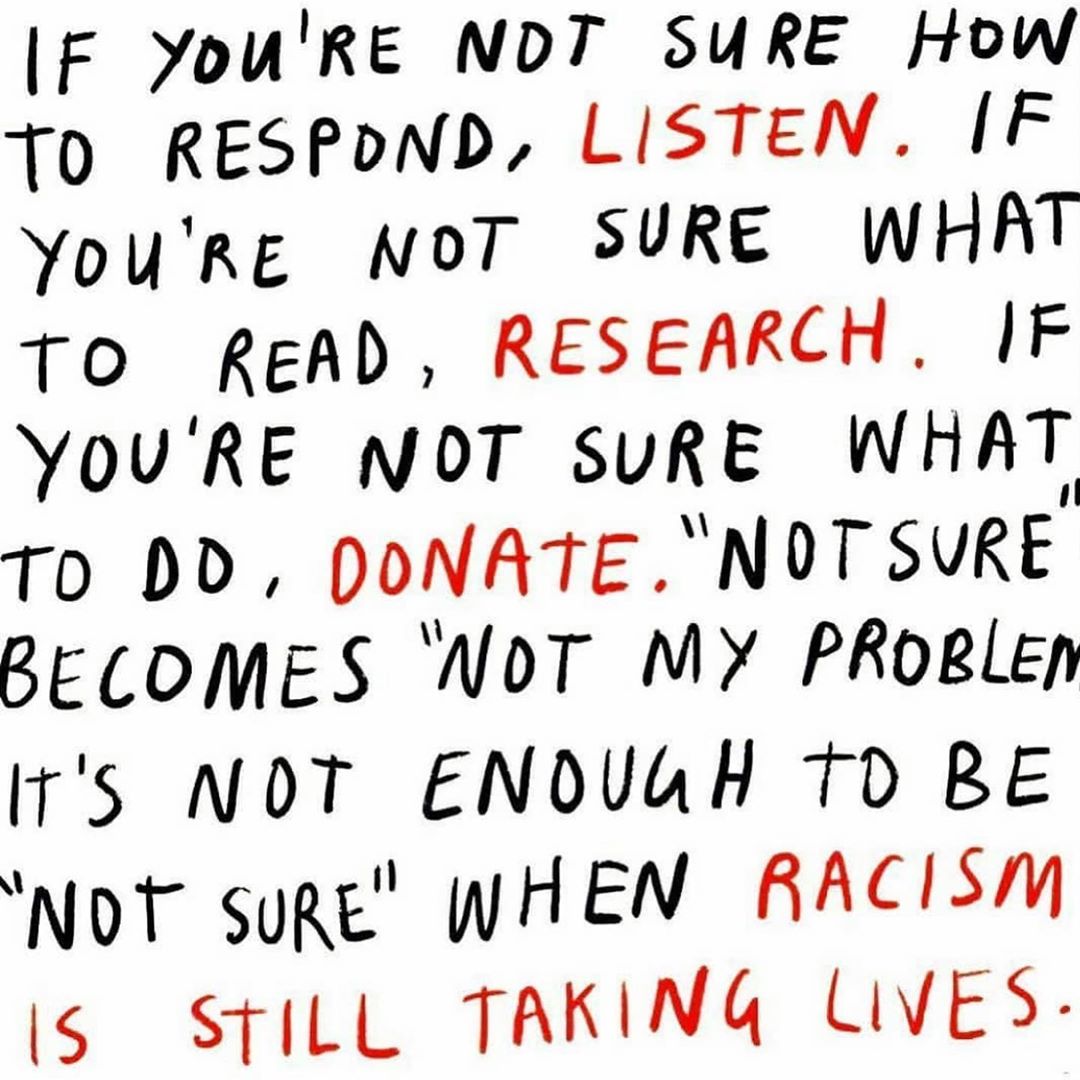 IF YOU'RE NOT SURE HOW
TO RESPOND, LISTEN. IF
YOU'RE NOT SURE WHAT
TO READ, RESEARCH. IF
YOU'RE NOT SURE WHAT
TO DO, DONATE. "NOT SURE"
BECOMES "NOT MY PROBLEM
IT'S NOT ENOUGH TO BE
"NOT SURE" WHEN RACISM
IS STILL TAKING LIVES.